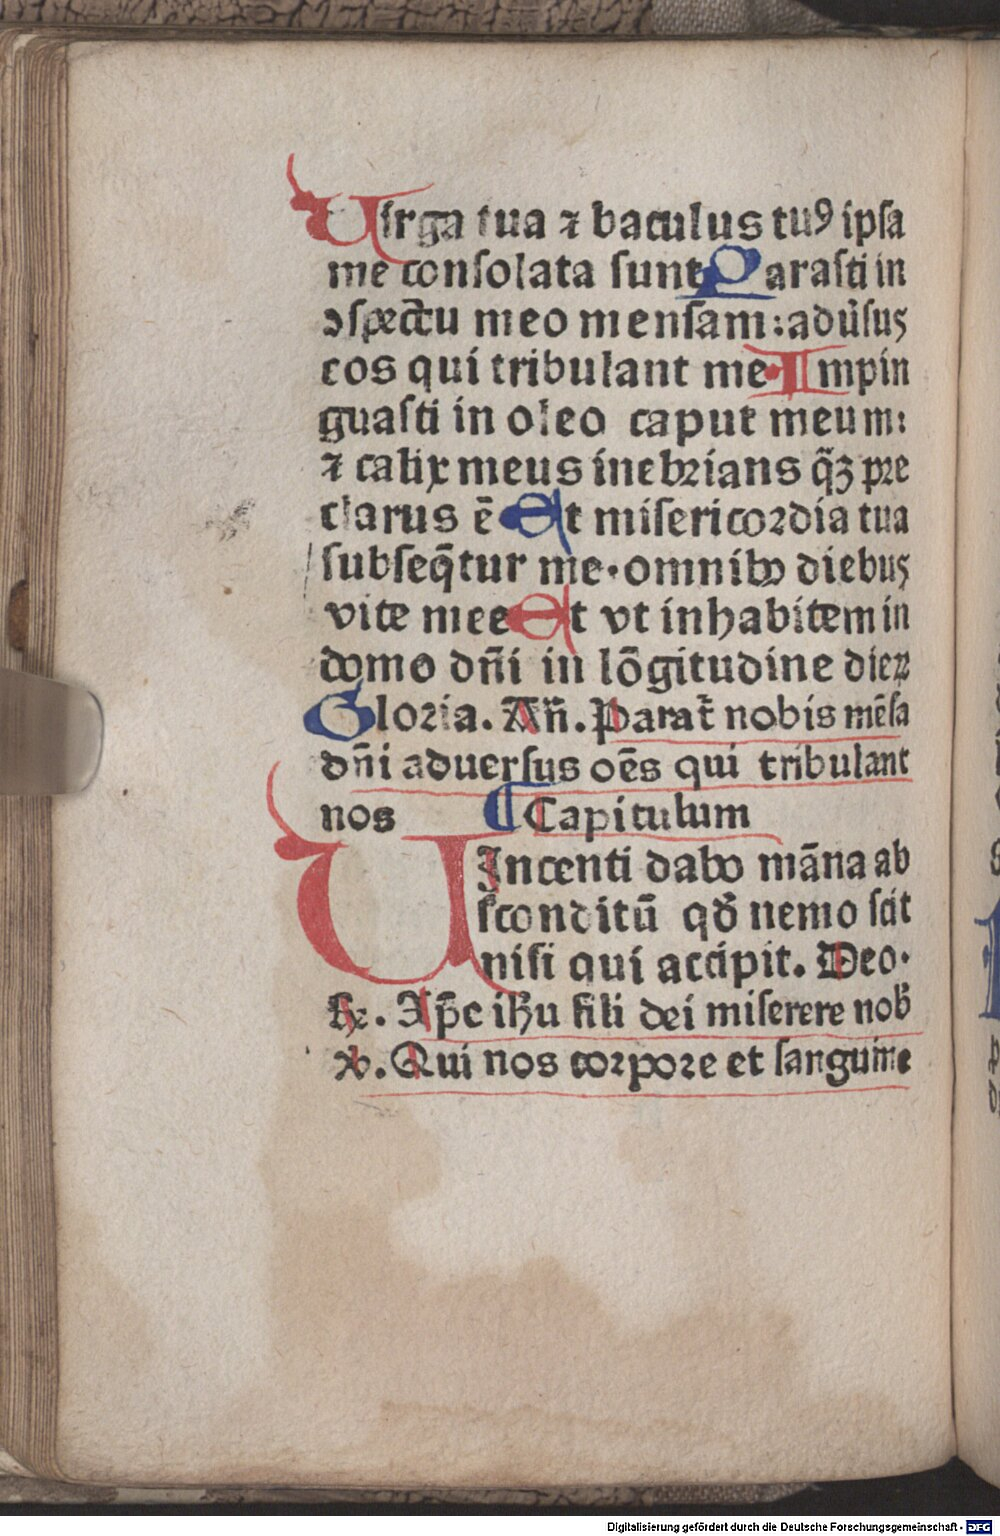 Uirga tua ⁊ baculus tuꝰ ipsa
me consolata sunt Parasti in
ↄspectu meo mensam: adu̓sus
eos qui tribulant me. Impin
guasti in oleo caput meum:
⁊ calix meus inebrians q̃ꝫ pre
clarus ē Et misericordia tua
subseq̃tur me. omnibꝰ diebus
vite mee Et vt inhabitem in
domo dñi in lōgitudine dieꝝ
Gloria. Añ. Parat̉ nobis mēsa
dñi aduersus oēs qui tribulant
nos Capitulum
UIncenti dabo māna ab
sconditū qđ nemo scit
nisi qui accipit. Deo.
℟. Xp̄e ihu fili dei miserere nob̓
℣. Qui nos corpore et sanguine
Digitalisierung gefördert durch die Deutsche Forschungsgemeinschaft - DFG